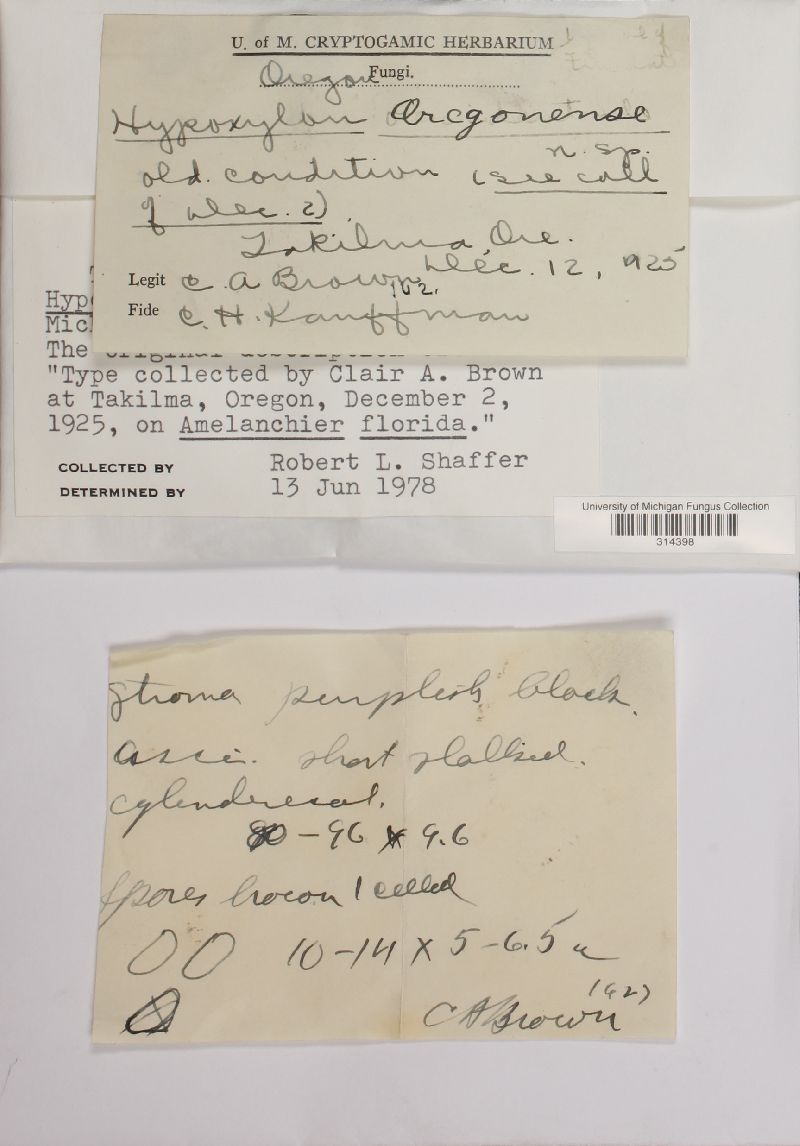 U. of M. CRYPTOGAMIC HERBARIUM
Oregon Fungi.
Hypoxylon Oregonense
n. sp.
old. condition (see coll
of Dec. 2)
Takilma, Ore.
Dec. 12, 1925
Legit C. A Brown
Fide C. H. Kauffman
Hyp
Mic
The original description
"Type collected by Clair A. Brown
at Takilma, Oregon, December 2,
1925, on Amelanchier florida."
COLLECTED BY Robert L. Shaffer
DETERMINED BY 13 Jun 1978
University of Michigan Fungus Collection
314398
Stroma purplish black.
Asci. short stalked.
cylenderecal.
80-96 x 9.6
Spores brown 1 celled
10-14 X 5-6.5 u
CABrown